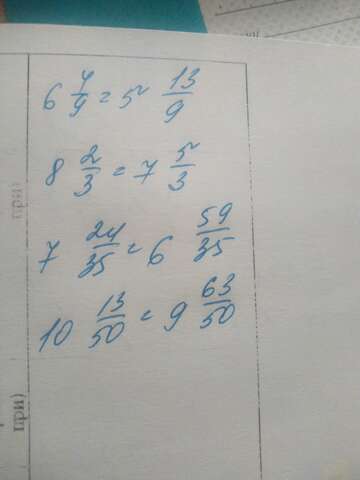 6 4/9 = 5 13/9
8 2/3 = 7 5/3
7 24/35 = 6 59/35
10 13/50 = 9 63/50
при)
при)